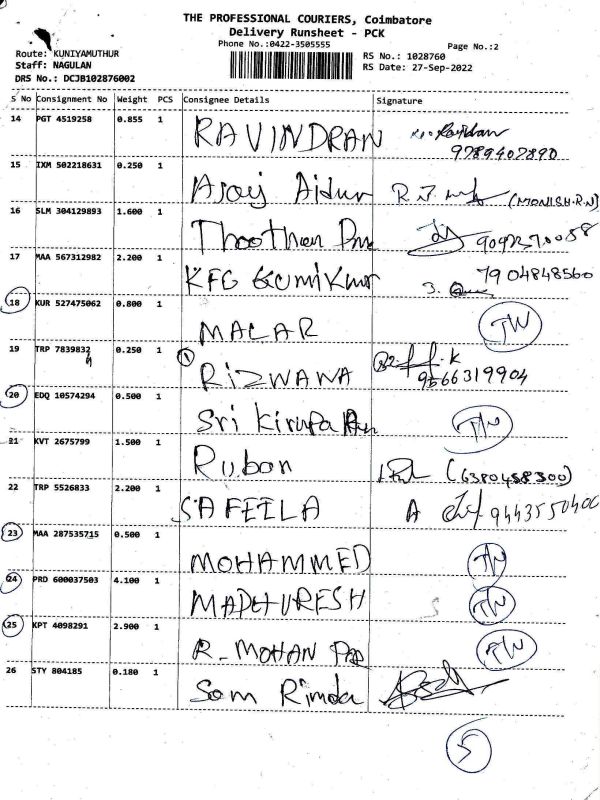 THE PROFESSIONAL COURIERS, Coimbatore
Delivery Runsheet - PCK
Phone No.:0422-3505555
Page No.:2
Route: KUNIYAMUTHUR
Staff: NAGULAN
DRS No.: DCJB102876002
RS No.: 1028760
RS Date: 27-Sep-2022
S No Consignment No Weight PCS Consignee Details Signature
14 PGT 4519258 0.855 1 RAVINDRAN
9789407890
15 IXM 502218631 0.250 1 (MONISH.R.N)
16 SLM 304129893 1.600 1
17 MAA 567312982 2.200 1 KFG 7904848560
18 KUR 527475062 0.800 1 MALAR TW
19 TRP 7839832 0.250 1 RIZWANA
9566319904
20 EDQ 10574294 0.500 1 Sri Kirupa TW
21 KVT 2675799 1.500 1 Ruban (6380458300)
22 TRP 5526833 2.200 1 SAFEILA A
23 MAA 287535715 0.500 1 MOHAMMED TW
24 PRD 600037503 4.100 1 MADHURESH TW
25 KPT 4098291 2.900 1 R. MOHAN TW
26 STY 804185 0.180 1 Sam
5